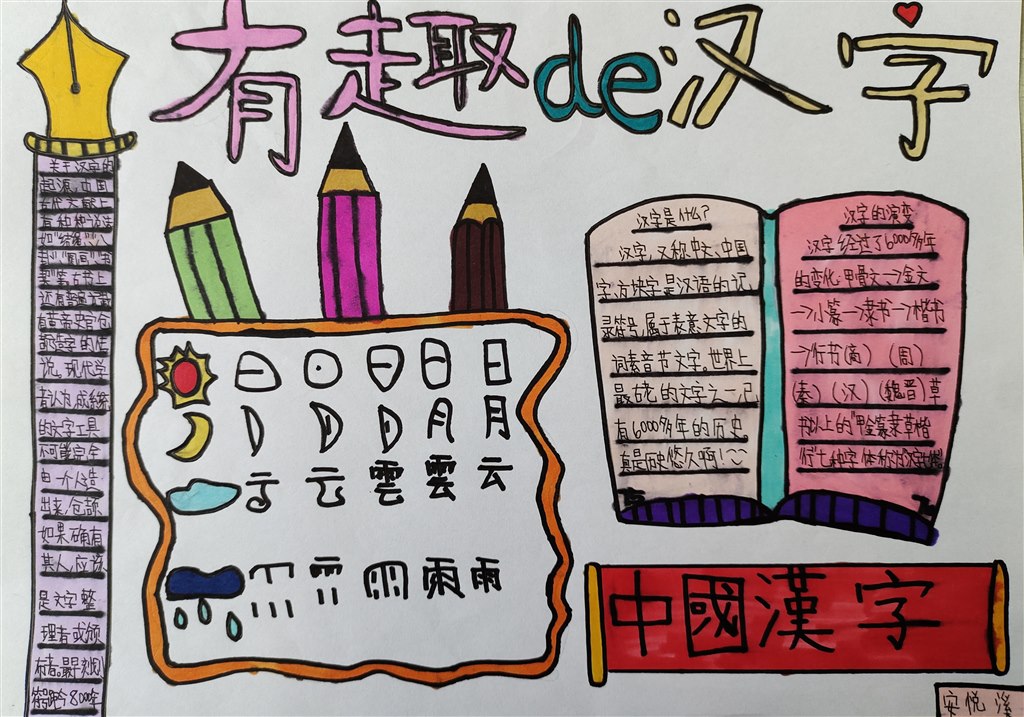 有趣de汉字
关于汉字的
起源,中国
古代文献上
有种种说法
如“结绳”“八
卦”“图画”“书
契”等,古书上
还有普遍记载
有黄帝史官仓
颉造字的传
说。现代学
者认为,成系统
的文字工具
不可能完全
由一个人造
出来,仓颉
如果确有
其人,应该
是文字整
理者或颁
布者。最早刻划
符号距今8000年
日
月
云 雲 雲 云
雨 雨
汉字是什么?
汉字,又称中文、中国
字、方块字是汉语的记
录符号,属于表意文字的
词素音节文字。世界上
最古老的文字之一已
有6000多年的历史
真是历史悠久啊!~~
汉字的演变
汉字经过了6000多年
的变化:甲骨文→金文
→小篆→隶书→楷书
→行书(商)(周)
(秦)(汉)(魏晋)草
书以上的“甲金篆隶草楷
行”七种字体称为汉字
中國漢字
安悦溪